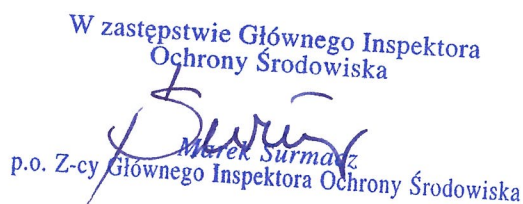 W zastępstwie Głównego Inspektora
Ochrony Środowiska
Marek Surmacz
p.o. Z-cy Głównego Inspektora Ochrony Środowiska